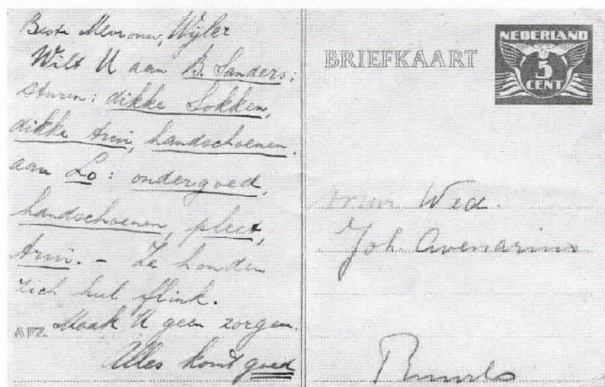 Beste Mevrouw, Wijler
Wilt U aan B. Sanders:
sturen: dikke Sokken,
dikke trui, handschoenen.
aan Lo: ondergoed,
handschoenen, pleet,
trui. – Ze houden
zich heel flink.
AFZ. Maak U geen zorgen.
Alles komt goed
BRIEFKAART
NEDERLAND
5
CENT
Wed.
Joh Avenarius